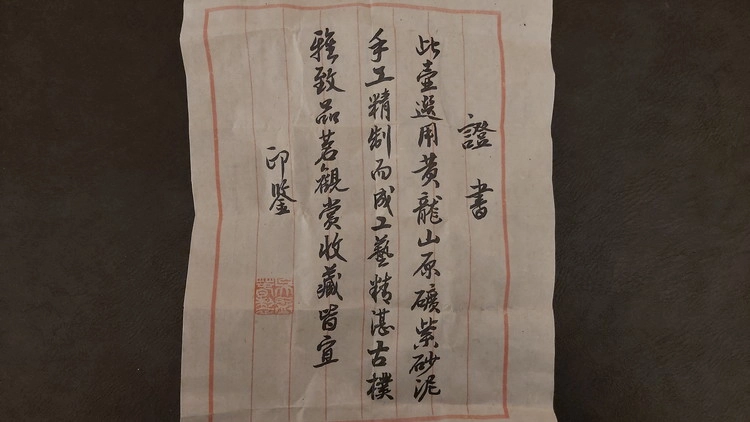 證書
此壺選用黃龍山原礦紫砂泥
手工精制而成工藝精湛古樸
雅致品茗觀賞收藏皆宜
印鑒